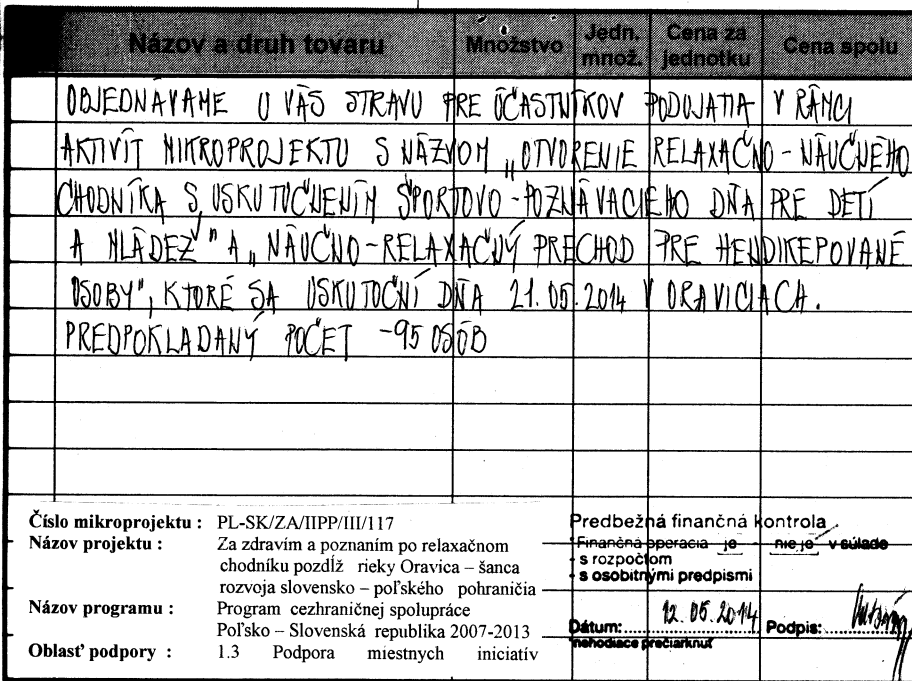 Názov a druh tovaru Množstvo Jedn. množ. Cena za jednotku Cena spolu
OBJEDNÁVAME U VÁS STRAVU PRE ÚČASTNÍKOV PODUJATIA V RÁMCI
AKTIVÍT MIKROPROJEKTU S NÁZVOM „OTVORENIE RELAXAČNO-NÁUČNÉHO
CHODNÍKA S USKUTOČNENÍM ŠPORTOVO-POZNÁVACIEHO DŇA PRE DETÍ
A MLÁDEŽ" A „NÁUČNO-RELAXAČNÝ PRECHOD PRE HENDIKEPOVANÉ
OSOBY", KTORÉ SA USKUTOČNÍ DŇA 21.05.2014 V ORAVICIACH.
PREDPOKLADANÝ POČET -95 OSÔB
Číslo mikroprojektu : PL-SK/ZA/IIPP/III/117
Názov projektu : Za zdravím a poznaním po relaxačnom
chodníku pozdĺž rieky Oravica – šanca
rozvoja slovensko – poľského pohraničia
Názov programu : Program cezhraničnej spolupráce
Poľsko – Slovenská republika 2007-2013
Oblasť podpory : 1.3 Podpora miestnych iniciatív
Predbežná finančná kontrola
Finančná operácia je - nie je v súlade
- s rozpočtom
- s osobitnými predpismi
Dátum: 12.05.2014 Podpis:
nehodiace prečiarknuť